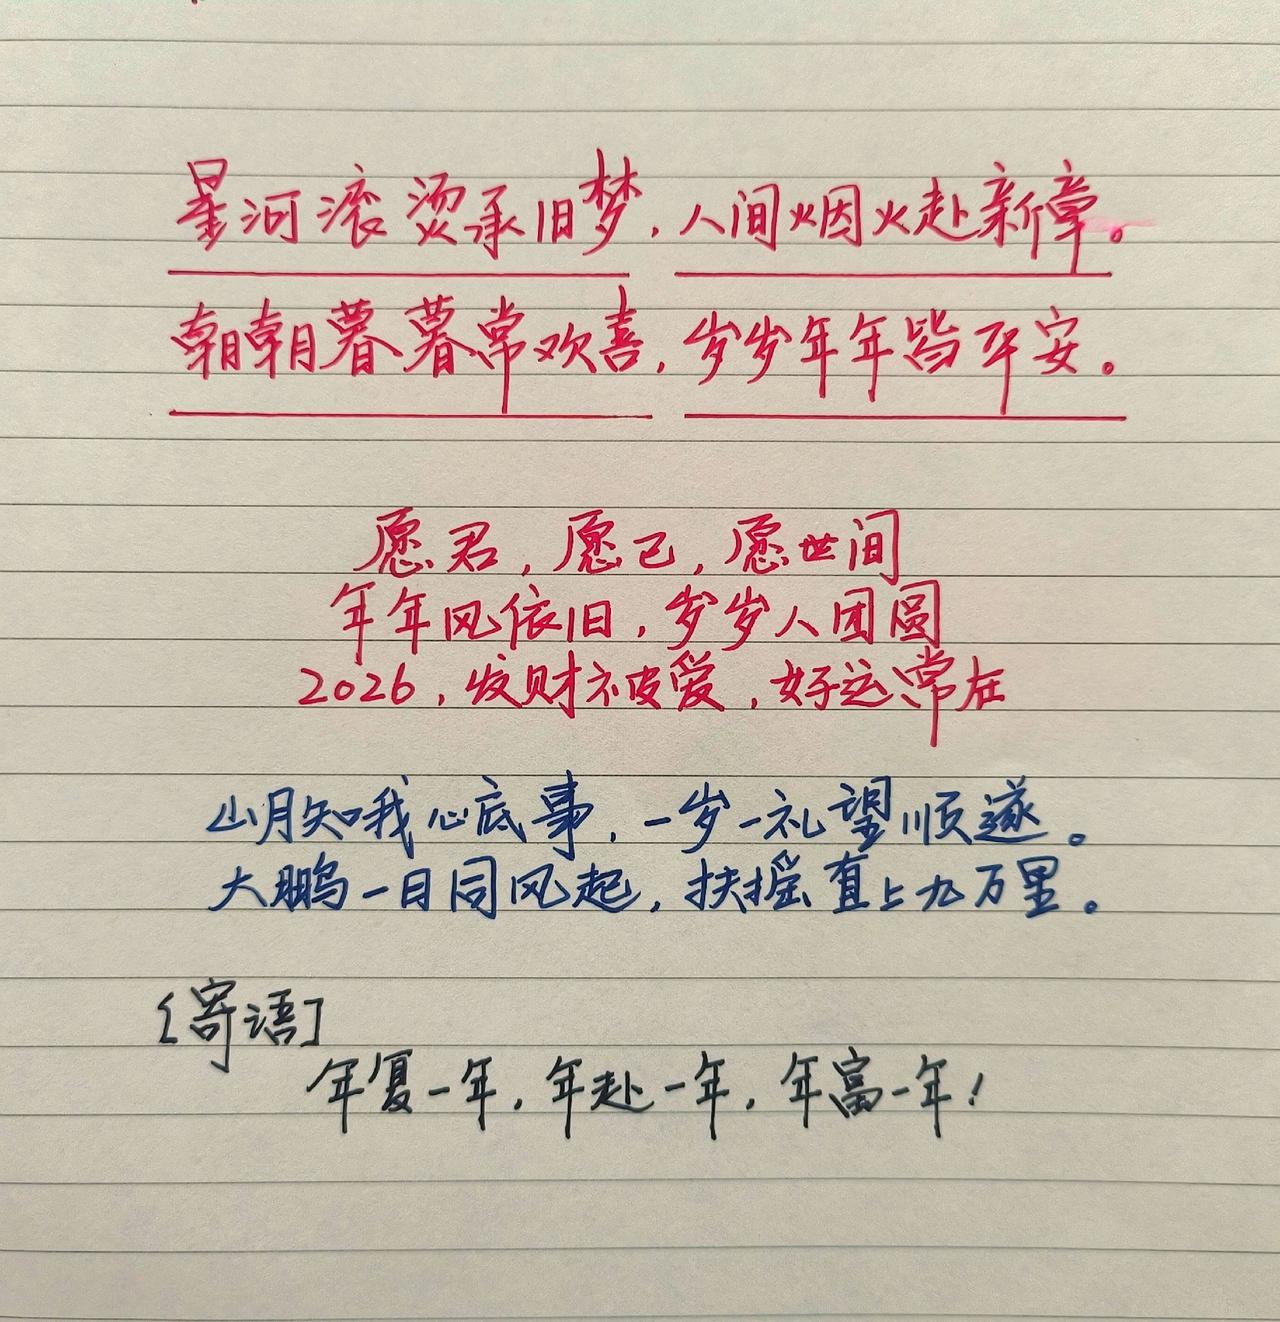 星河滚烫承旧梦，人间烟火赴新章。
朝朝暮暮常欢喜，岁岁年年皆平安。
愿君，愿己，愿世间
年年风依旧，岁岁人团圆
2026，发财被爱，好运常在
山月知我心底事，一岁一礼望顺遂。
大鹏一日同风起，扶摇直上九万里。
[寄语]
年复一年，年赴一年，年富一年！